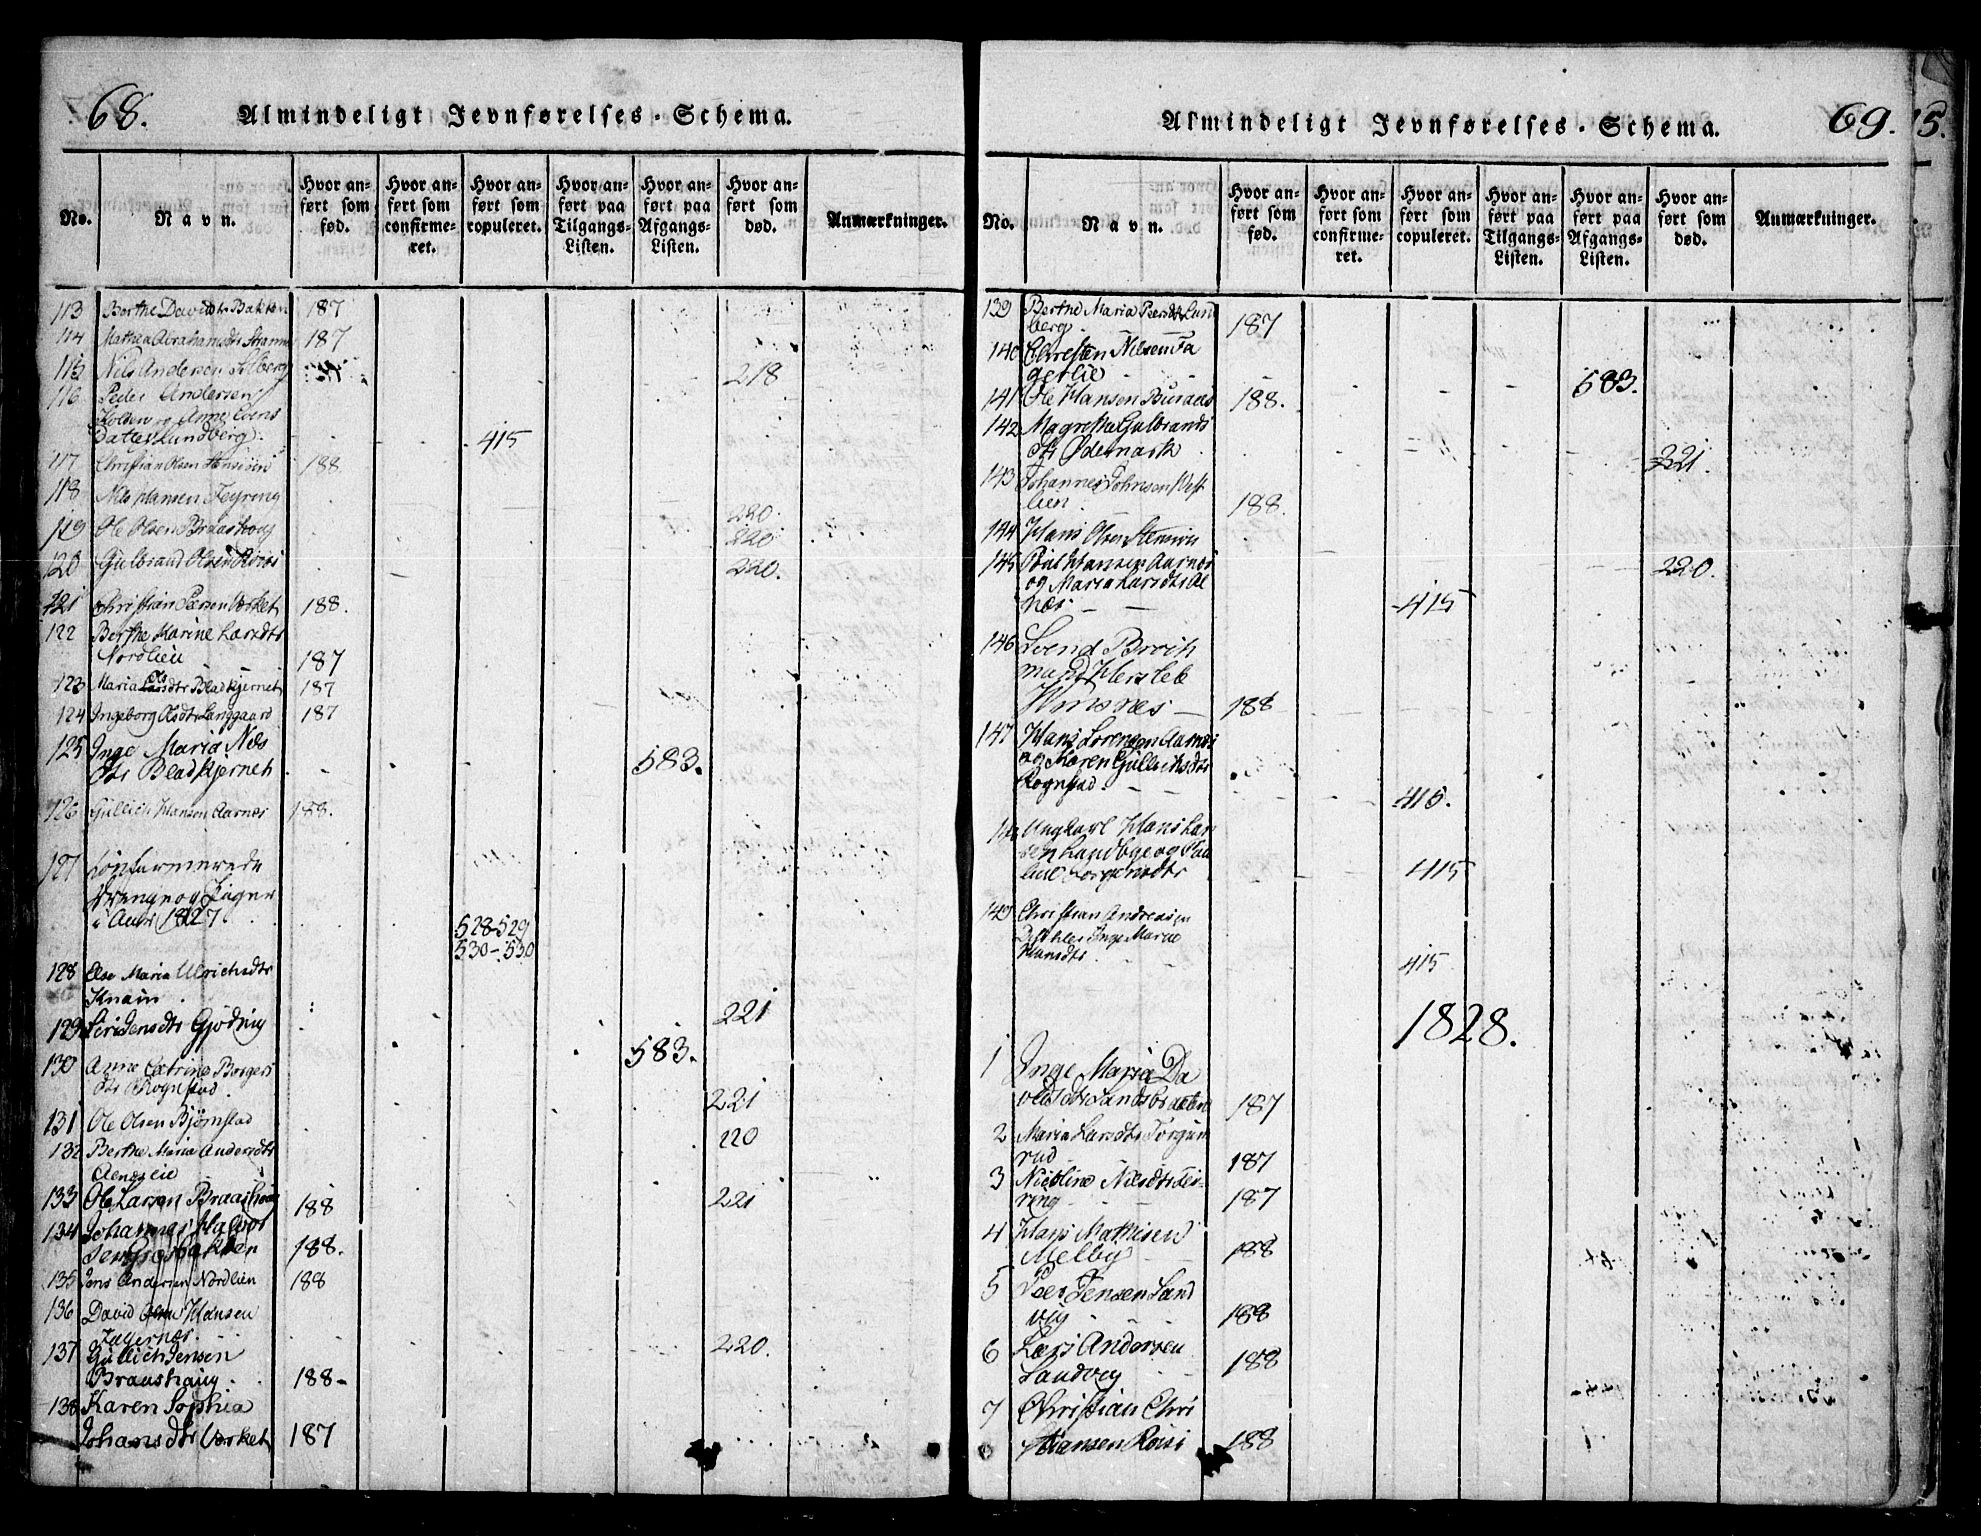 68.
Almindeligt Jevnførelses-Schema.
No.
Navn.
Hvor anført som fød.
Hvor anført som confirmeret.
Hvor anført som copuleret.
Hvor anført paa Tilgangs-Listen.
Hvor anført paa Afgangs-Listen.
Hvor anført som død.
Anmærkninger.
113 Berthe Davidtr Bakken 187
114 Mathea Abrahamsdtr 187
115 Nils Andersen Solberg 218
116 Peder Andersen
Holden og Anne Evens
datter Lundberg. 415
117 Christian Olsen 188
118 Nils Hansen Feyring 220.
119 Ole Olsen Braashoug 220
120 Gulbrand Olsen 220.
121 Christian Persen Værket 188.
122 Berthe Marine Larsdtr
Nordlien 187
123 Maria Olsdtr Bladkjernet 187
124 Ingeborg Olsdtr Langgaard 187
125 Inge Maria Nils
dtr Bladkjernet 583.
126 Gullich Hansen Aarnes 188.
127 Confirmerede
Drenge og Piger
i Aar 1827. 528-529
530-530
128 Else Maria Ulrichsdtr
Knain. 221
129 Siri Jensdtr Gjødvig 583.
130 Anne Catrine Borgers
dtr Rognstad. 221
131 Ole Olsen Bjørnstad 220
132 Berthe Maria Andersdtr
133 Ole Larsen Braashoug 221
188
134 Johannes Halvor
sen Bakken 188.
135 Jens Andersen Nordlien 188
136 David Hansen
Fagernæs. 220.
137 Gullich Jensen
Braashaug. 188-
138 Karen Sophia
Johansdtr Værket 187
Almindeligt Jevnførelses-Schema.
69.
15.
No.
Navn.
Hvor anført som fød.
Hvor anført som confirmeret.
Hvor anført som copuleret.
Hvor anført paa Tilgangs-Listen.
Hvor anført paa Afgangs-Listen.
Hvor anført som død.
Anmærkninger.
139 Berthe Maria Peersdtr Lund
berg. 187
140 Christen Nilsen Fa
gerlie 583.
141 Ole Hansen Buraas 188.
142 Magrethe Gulbrands
dtr Ødemark 221.
143 Johannes Johnsen Vest
lien. 188.
144 Hans Olsen 220.
145 Poul Hansen Aarnes
og Maria Larsdtr
næs 415
146 Svend Broch
mand Hersleb
Hvisnæs 188
147 Hans Lorensen Aarnes
og Karen Gullichsdtr
Rognstad. 415.
148 Ungkarl Hans Lar
sen Landbye og 415
149 Christian Andreasen
Inge Marie
Hansdtr. 415
1828.
1 Inge Maria Da
vidsdtr Sandsbraaten 187
2 Maria Larsdtr Torgun
rud 187
3 Nicoline Nilsdtr Fei-
ring 187
4 Hans Mathisen
Melby 188
5 Peer Jensen Sand
vig 188
6 Lars Andersen
Sandvig 188
7 Christian Chri
stiansen Roisi 188